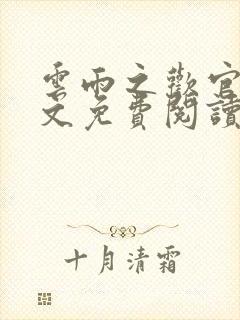 雲雨之歡官
文免費閱讀
十月清霜